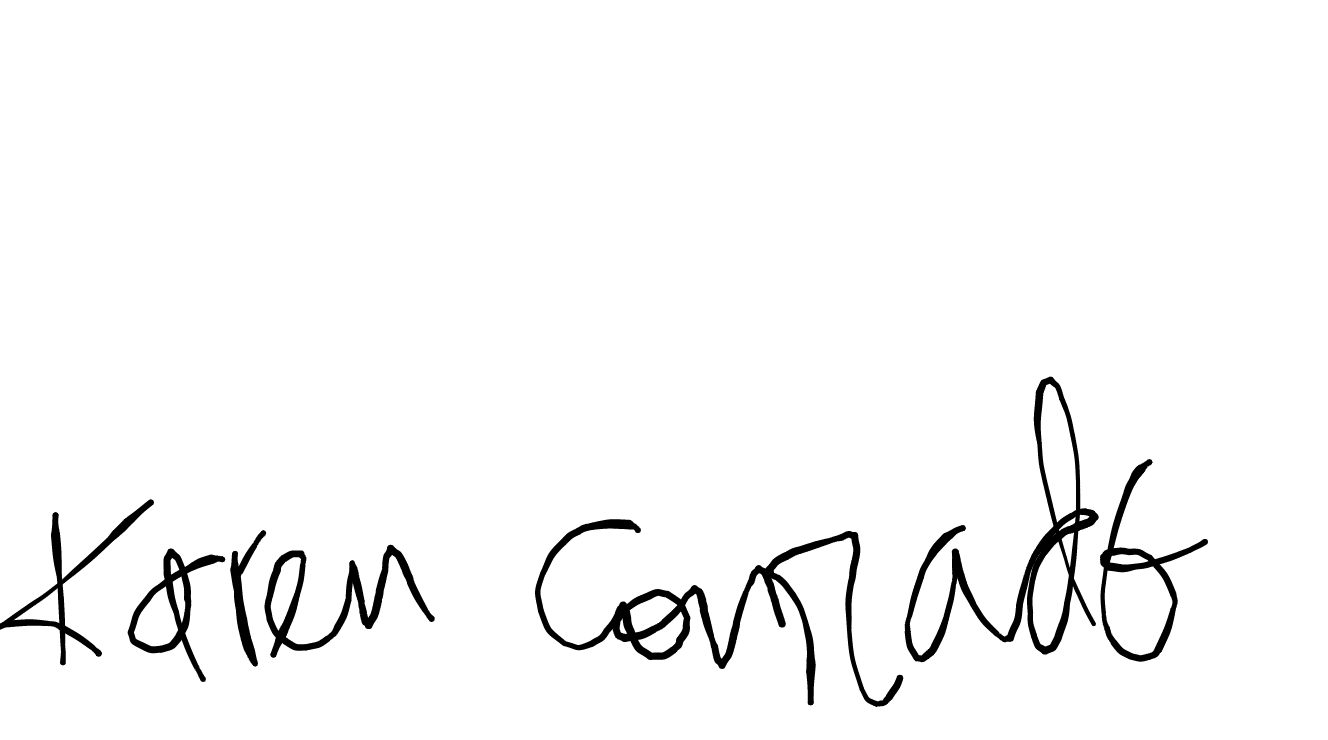 Karen Conrado